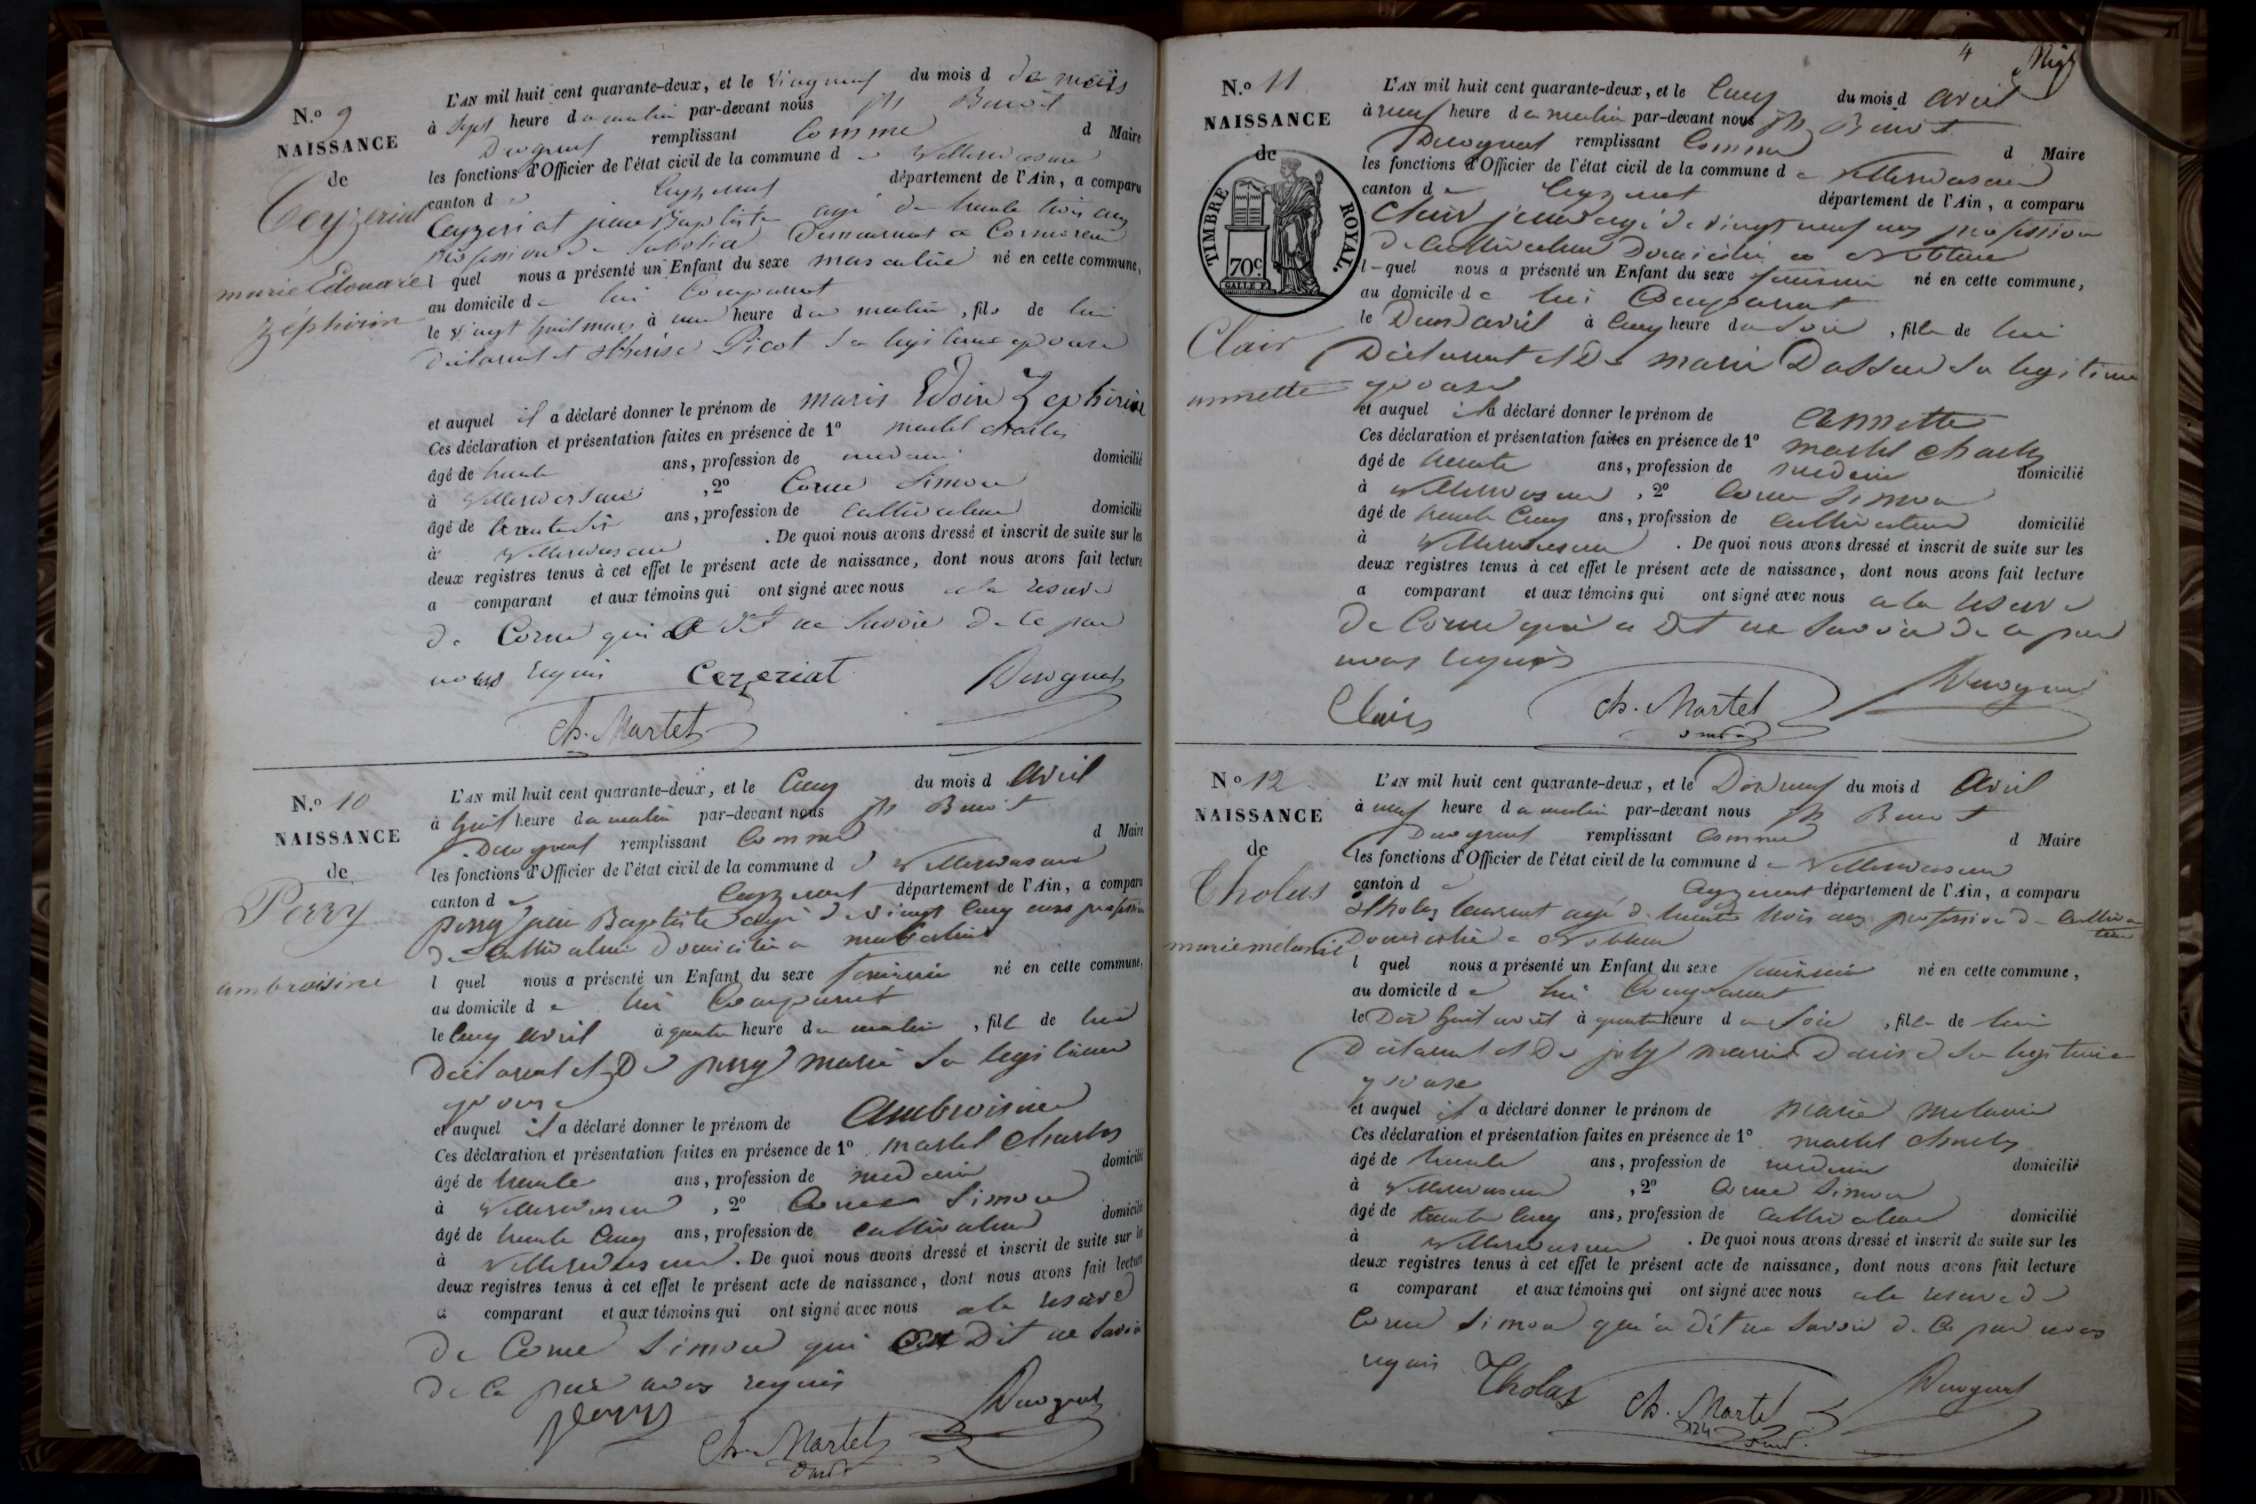 N.º 9
NAISSANCE
de
Ceyzeriat
marie Edouard
zéphirin
L'AN mil huit cent quarante-deux, et le vingneuf du mois d de mars
à sept heure du matin par-devant nous Jh Benoit
remplissant comme d Maire
les fonctions d'Officier de l'état civil de la commune d
canton d département de l'Ain, a comparu
Ceyzeriat jean Baptiste agé de trente trois ans
profession de Demeurant a
l quel nous a présenté un Enfant du sexe masculin né en cette commune,
au domicile de lui Comparant
le vingt huit mars à heure du matin, fils de lui
Déclarant et thérèse Picot Sa legitime epouse
et auquel il a déclaré donner le prénom de marie Zephirin
Ces déclaration et présentation faites en présence de 1º martel charles
âgé de trente ans, profession de medecin domicilié
à , 2º Corne Simon
âgé de ans, profession de cultivateur domicilié
à . De quoi nous avons dressé et inscrit de suite sur les
deux registres tenus à cet effet le présent acte de naissance, dont nous avons fait lecture
a comparant et aux témoins qui ont signé avec nous a la reserve
de Corne qui a dit ne Savoir de ce par
nous requis Cezeriat
Ch. Martet
N.º 10
NAISSANCE
de
Perry
ambroisine
L'AN mil huit cent quarante-deux, et le Cinq du mois d Avril
à huit heure du matin par-devant nous Jh Benoit
remplissant Comme d Maire
les fonctions d'Officier de l'état civil de la commune d
canton d département de l'Ain, a comparu
perry jean Baptiste agé de vingt Cinq ans profession
de Cultivateur Domicilié a
l quel nous a présenté un Enfant du sexe feminin né en cette commune,
au domicile de lui Comparant
le Cinq avril à quatre heure du matin, fille de lui
Déclarant et De perry marie Sa legitime
epouse
et auquel il a déclaré donner le prénom de Ambroisine
Ces déclaration et présentation faites en présence de 1º martel charles
âgé de trente ans, profession de medecin domicilié
à , 2º Corne Simon
âgé de trente Cinq ans, profession de cultivateur domicilié
à . De quoi nous avons dressé et inscrit de suite sur les
deux registres tenus à cet effet le présent acte de naissance, dont nous avons fait lecture
a comparant et aux témoins qui ont signé avec nous a la reserve
de Corne Simon qui a Dit ne Savoir
de ce par nous requis
perry
Ch. Martet
4
N.º 11
NAISSANCE
de
TIMBRE ROYAL.
70c
Clair
annette
L'AN mil huit cent quarante-deux, et le Cinq du mois d avril
à neuf heure du matin par-devant nous Jh Benoit
remplissant Comme d Maire
les fonctions d'Officier de l'état civil de la commune d
canton d département de l'Ain, a comparu
Clair agé de vingt neuf ans profession
de Cultivateur Domicilié a
l quel nous a présenté un Enfant du sexe feminin né en cette commune,
au domicile de lui Comparant
le Deux avril à Cinq heure du Soir, fille de lui
Déclarant et De marie Sa legitime
epouse
et auquel il a déclaré donner le prénom de Annette
Ces déclaration et présentation faites en présence de 1º martel charles
âgé de trente ans, profession de medecin domicilié
à , 2º Corne Simon
âgé de trente Cinq ans, profession de cultivateur domicilié
à . De quoi nous avons dressé et inscrit de suite sur les
deux registres tenus à cet effet le présent acte de naissance, dont nous avons fait lecture
a comparant et aux témoins qui ont signé avec nous a la reserve
de Corne qui a Dit ne Savoir de ce par
nous requis
Clair
Ch. Martet
Nº 12
NAISSANCE
de
Tholas
marie melanie
L'AN mil huit cent quarante-deux, et le Dix neuf du mois d Avril
à neuf heure du matin par-devant nous Jh Benoit
remplissant Comme d Maire
les fonctions d'Officier de l'état civil de la commune d
canton d département de l'Ain, a comparu
Tholas laurent agé de trente trois ans profession de Cultivateur
Domicilié a
l quel nous a présenté un Enfant du sexe feminin né en cette commune,
au domicile de lui Comparant
le Dix huit avril à quatre heure du Soir, fille de lui
Déclarant et De joly marie Sa legitime
epouse
et auquel il a déclaré donner le prénom de marie melanie
Ces déclaration et présentation faites en présence de 1º martel charles
âgé de trente ans, profession de medecin domicilié
à , 2º Corne Simon
âgé de trente Cinq ans, profession de Cultivateur domicilié
à . De quoi nous avons dressé et inscrit de suite sur les
deux registres tenus à cet effet le présent acte de naissance, dont nous avons fait lecture
a comparant et aux témoins qui ont signé avec nous a la reserve de
Corne Simon qui a dit ne Savoir de Ce par nous
requis Tholas
Ch. Martet